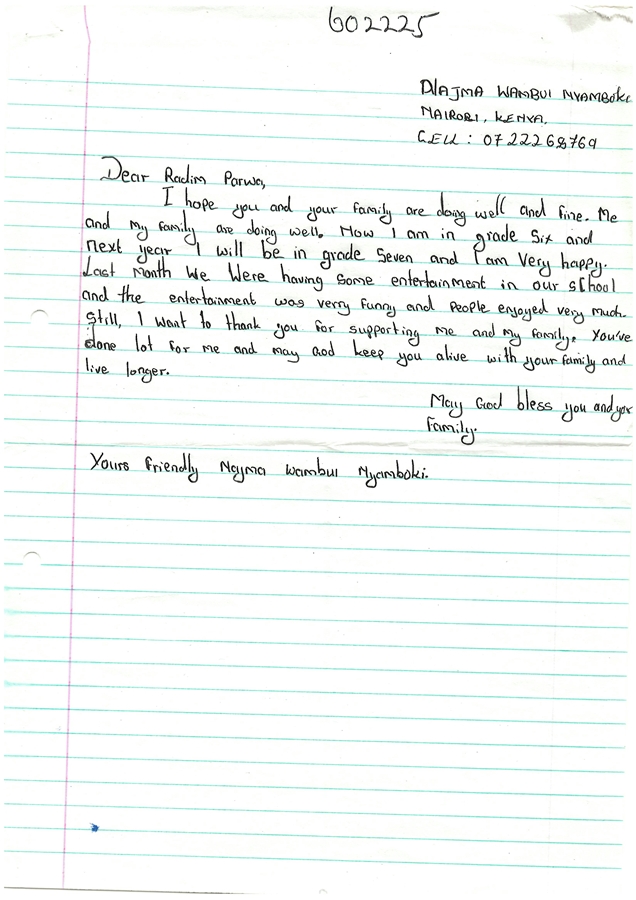 602225
NAJMA WAMBUI NYAMBOKI
NAIROBI, KENYA.
CELL: 0722268769
Dear Radim Parwa,
I hope you and your family are doing well and fine. Me
and my family are doing well. Now I am in grade Six and
next year I will be in grade Seven and I am Very happy.
Last Month We Were having Some entertainment in our school
and the entertainment was verry funny and People enjoyed very much.
Still, I want to thank you for supporting me and my family. You've
done lot for me and may God keep you alive with your family and
live longer.
May God bless you and your
Family.
Yours friendly Najma Wambui Nyamboki.